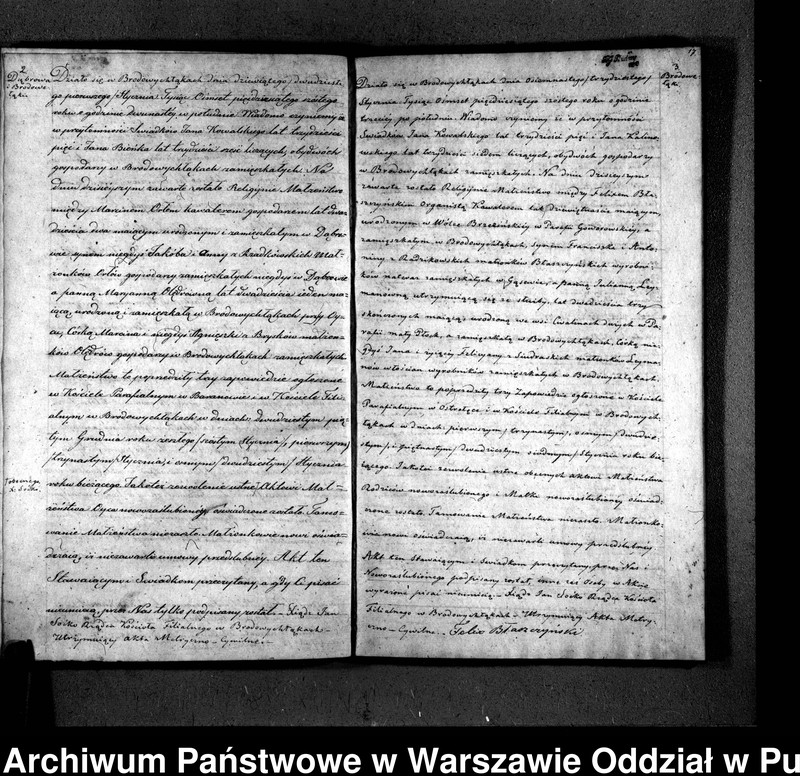 2
Dąbrowa
i Brodowe
Łąki
Działo się w Brodowychłąkach dnia dziewiątego/dwudzieste
go pierwszego/Stycznia Tysiąc Ośmset pięćdziesiątego szóstego
roku o godzinie dwunastej w południe. Wiadomo czynimy iż
w przytomności Świadków Jana Kowalskiego lat trzydzieści
pięć i Jana Bieńka lat trzydzieści sześć liczących, obydwóch
gospodarzy w Brodowychłąkach zamieszkałych. Na
dniu dzisiejszym zawarte zostało Religijne Małżeństwo
między Marcinem Orłem kawalerem gospodarzem lat dwa-
dzieścia dwa mającym urodzonym i zamieszkałym w Dąbro-
wie synem niegdyś Jakóba i Anny z Mał-
żonków Orłów gospodarzy zamieszkałych niegdyś w Dąbrowie
a panną Maryanną Olędrówną lat dwadzieścia jeden ma-
jącą urodzoną i zamieszkałą w Brodowychłąkach przy Oj-
cu, Córką Marcina i niegdyś Agnieszki z Brysków małżon-
ków Olędrów gospodarzy w Brodowychłąkach zamieszkałych
Małżeństwo to poprzedziły trzy zapowiedzie ogłoszone
w Kościele Parafialnym w Baranowie i w Kościele Fili-
alnym w Brodowychłąkach w dniach: dwudziestym pią-
tym Grudnia roku zeszłego/szóstym Stycznia/, pierwszym/
trzynastym/Stycznia, i ósmym/dwudziestym/Stycznia
roku bieżącego. Jakoteż zezwolenie ustne Aktowi Mał-
żeństwa Ojca nowozaślubionej oświadczone zostało. Tamo-
wanie Małżeństwa niezaszło. Małżonkowie nowi oświa-
dczają, iż niezawarli umowy przedślubnej. Akt ten
Stawającym i Świadkom przeczytany, a gdy Ci pisać
nieumieją przez Nas tylko podpisany został. Xiądz Jan
Soćko Rządca Kościoła Filialnego w Brodowychłąkach
Utrzymujący Akta Metryczno-Cywilne.
17
3
Brodowe
Łąki
Działo się w Brodowychłąkach dnia Ośmnastego/trzydziestego/
Stycznia Tysiąc Ośmset pięćdziesiątego szóstego roku o godzinie
trzeciej po południu. Wiadomo czynimy iż w przytomności
Świadków Jana Kowalskiego lat trzydzieści pięć i Jana
lat trzydzieści siedem liczących, obydwóch gospodarzy
w Brodowychłąkach zamieszkałych. Na dniu dzisiejszym
zawarte zostało Religijne Małżeństwo między Felixem Bła-
szczyńskim Organistą Kawalerem lat dziewiętnaście mającym,
urodzonym w Wólce Brzezińskiej w Parafii Goworowskiej, a
zamieszkałym w Brodowychłąkach, synem Franciszka i
małżonków Błaszczyńskich wyrobni-
ków zamieszkałych w Gąsewie, a panną Julianną
utrzymującą się ze służby, lat dwadzieścia trzy
skończonych mającą, urodzoną we wsi w Pa-
rafii mały Płock, a zamieszkałą w Brodowychłąkach, Córką nie-
gdyś Jana i żyjącej Felicyany z małżonków
wyrobników zamieszkałych w Brodowychłąkach.
Małżeństwo to poprzedziły trzy Zapowiedzie ogłoszone w Kościele
Parafialnym w Ostrołęce, i w Kościele Filialnym w Brodowych-
łąkach w dniach: pierwszym/trzynastym, ósmym/dwudzie-
stym/i piętnastym/dwudziestym siódmym/Stycznia roku bie-
żącego. Jakoteż zezwolenia ustne obecnych aktowi Małżeństwa
Rodziców nowozaślubionego i Matki nowozaślubionej oświad-
czone zostało. Tamowanie Małżeństwa niezaszło. Małżonko-
wie nowi oświadczają, iż niezawarli umowy przedślubnej
Akt ten Stawającym i Świadkom przeczytany, przez Nas i
Nowozaślubionego podpisany został, inne zaś Osoby w Akcie
wyrażone pisać nieumieją. Xiądz Jan Soćko Rządca Kościoła
Filialnego w Brodowychłąkach Utrzymujący Akta Metry-
czno-Cywilne. Felix Błaszczyński
Archiwum Państwowe w Warszawie Oddział w Pu